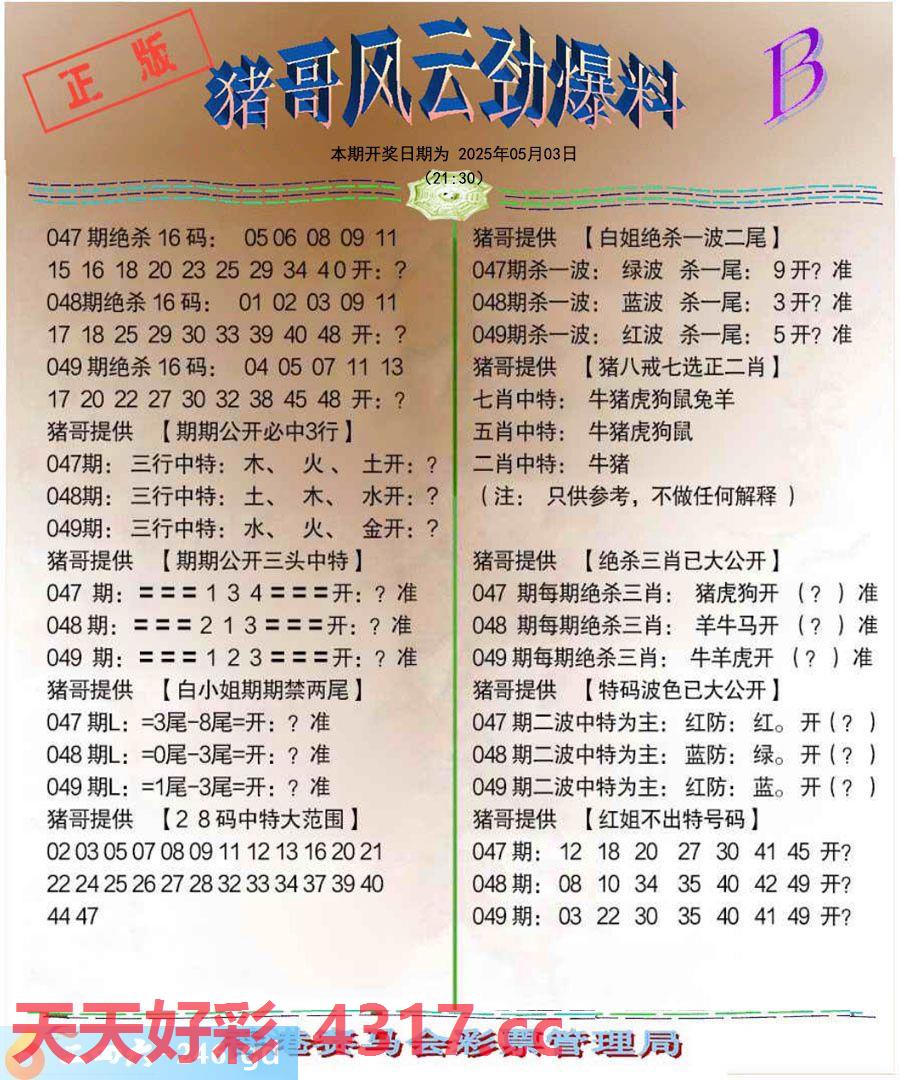 正版
猪哥风云劲爆料
B
本期开奖日期为 2025年05月03日
(21:30)
047期绝杀16码： 05 06 08 09 11
15 16 18 20 23 25 29 34 40开：?
048期绝杀16码： 01 02 03 09 11
17 18 25 29 30 33 39 40 48 开：?
049期绝杀16码： 04 05 07 11 13
17 20 22 27 30 32 38 45 48 开：?
猪哥提供 【期期公开必中3行】
047期：三行中特：木、 火、 土开：?
048期：三行中特：土、 木、 水开：?
049期：三行中特：水、 火、 金开：?
猪哥提供 【期期公开三头中特】
047 期：=== 1 3 4 ===开：? 准
048期：=== 2 1 3 ===开：? 准
049 期：=== 1 2 3 ===开：? 准
猪哥提供 【白小姐期期禁两尾】
047期L：=3尾-8尾=开：? 准
048期L：=0尾-3尾=开：? 准
049期L：=1尾-3尾=开：? 准
猪哥提供 【28码中特大范围】
02 03 05 07 08 09 11 12 13 16 20 21
22 24 25 26 27 28 32 33 34 37 39 40
44 47
猪哥提供 【白姐绝杀一波二尾】
047期杀一波： 绿波 杀一尾： 9开? 准
048期杀一波： 蓝波 杀一尾： 3开? 准
049期杀一波： 红波 杀一尾： 5开? 准
猪哥提供 【猪八戒七选正二肖】
七肖中特： 牛猪虎狗鼠兔羊
五肖中特： 牛猪虎狗鼠
二肖中特： 牛猪
（注： 只供参考，不做任何解释）
猪哥提供 【绝杀三肖已大公开】
047 期每期绝杀三肖： 猪虎狗开 （?）准
048 期每期绝杀三肖： 羊牛马开 （?）准
049期每期绝杀三肖： 牛羊虎开 （?）准
猪哥提供 【特码波色已大公开】
047期二波中特为主：红防：红。开（?）
048期二波中特为主：蓝防：绿。开（?）
049期二波中特为主：红防：蓝。开（?）
猪哥提供 【红姐不出特号码】
047期： 12 18 20 27 30 41 45 开?
048期： 08 10 34 35 40 42 49 开?
049期： 03 22 30 35 40 41 49 开?
天天好彩 4317.cc
港赛马会彩票管理局